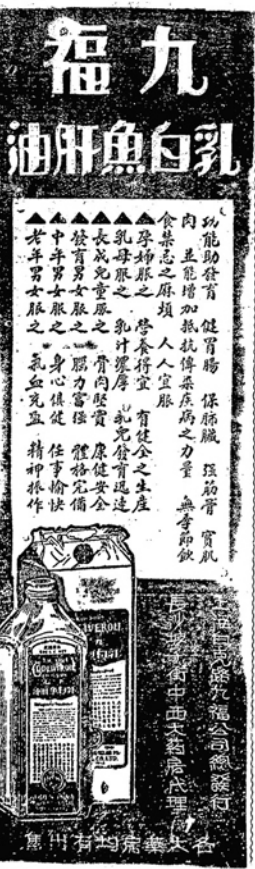 九福
乳白魚肝油
功能助發育 健胃腸 保肺臟 强筋骨 實肌
肉 並能增加抵抗傳染疾病之力量 無季節飲
食禁忌之麻煩 人人宜服
▲孕婦服之 營養得宜 有健全之生產
▲乳母服之 乳汁濃厚 乳兒發育迅速
▲長成兒童服之 骨肉堅實 康健安全
▲發育男女服之 腦力富强 體格完備
▲中年男女服之 身心俱健 任事愉快
▲老年男女服之 氣血充盈 精神振作
九福公司總發行
長沙 街中西大药房代理
各大藥房均有出售